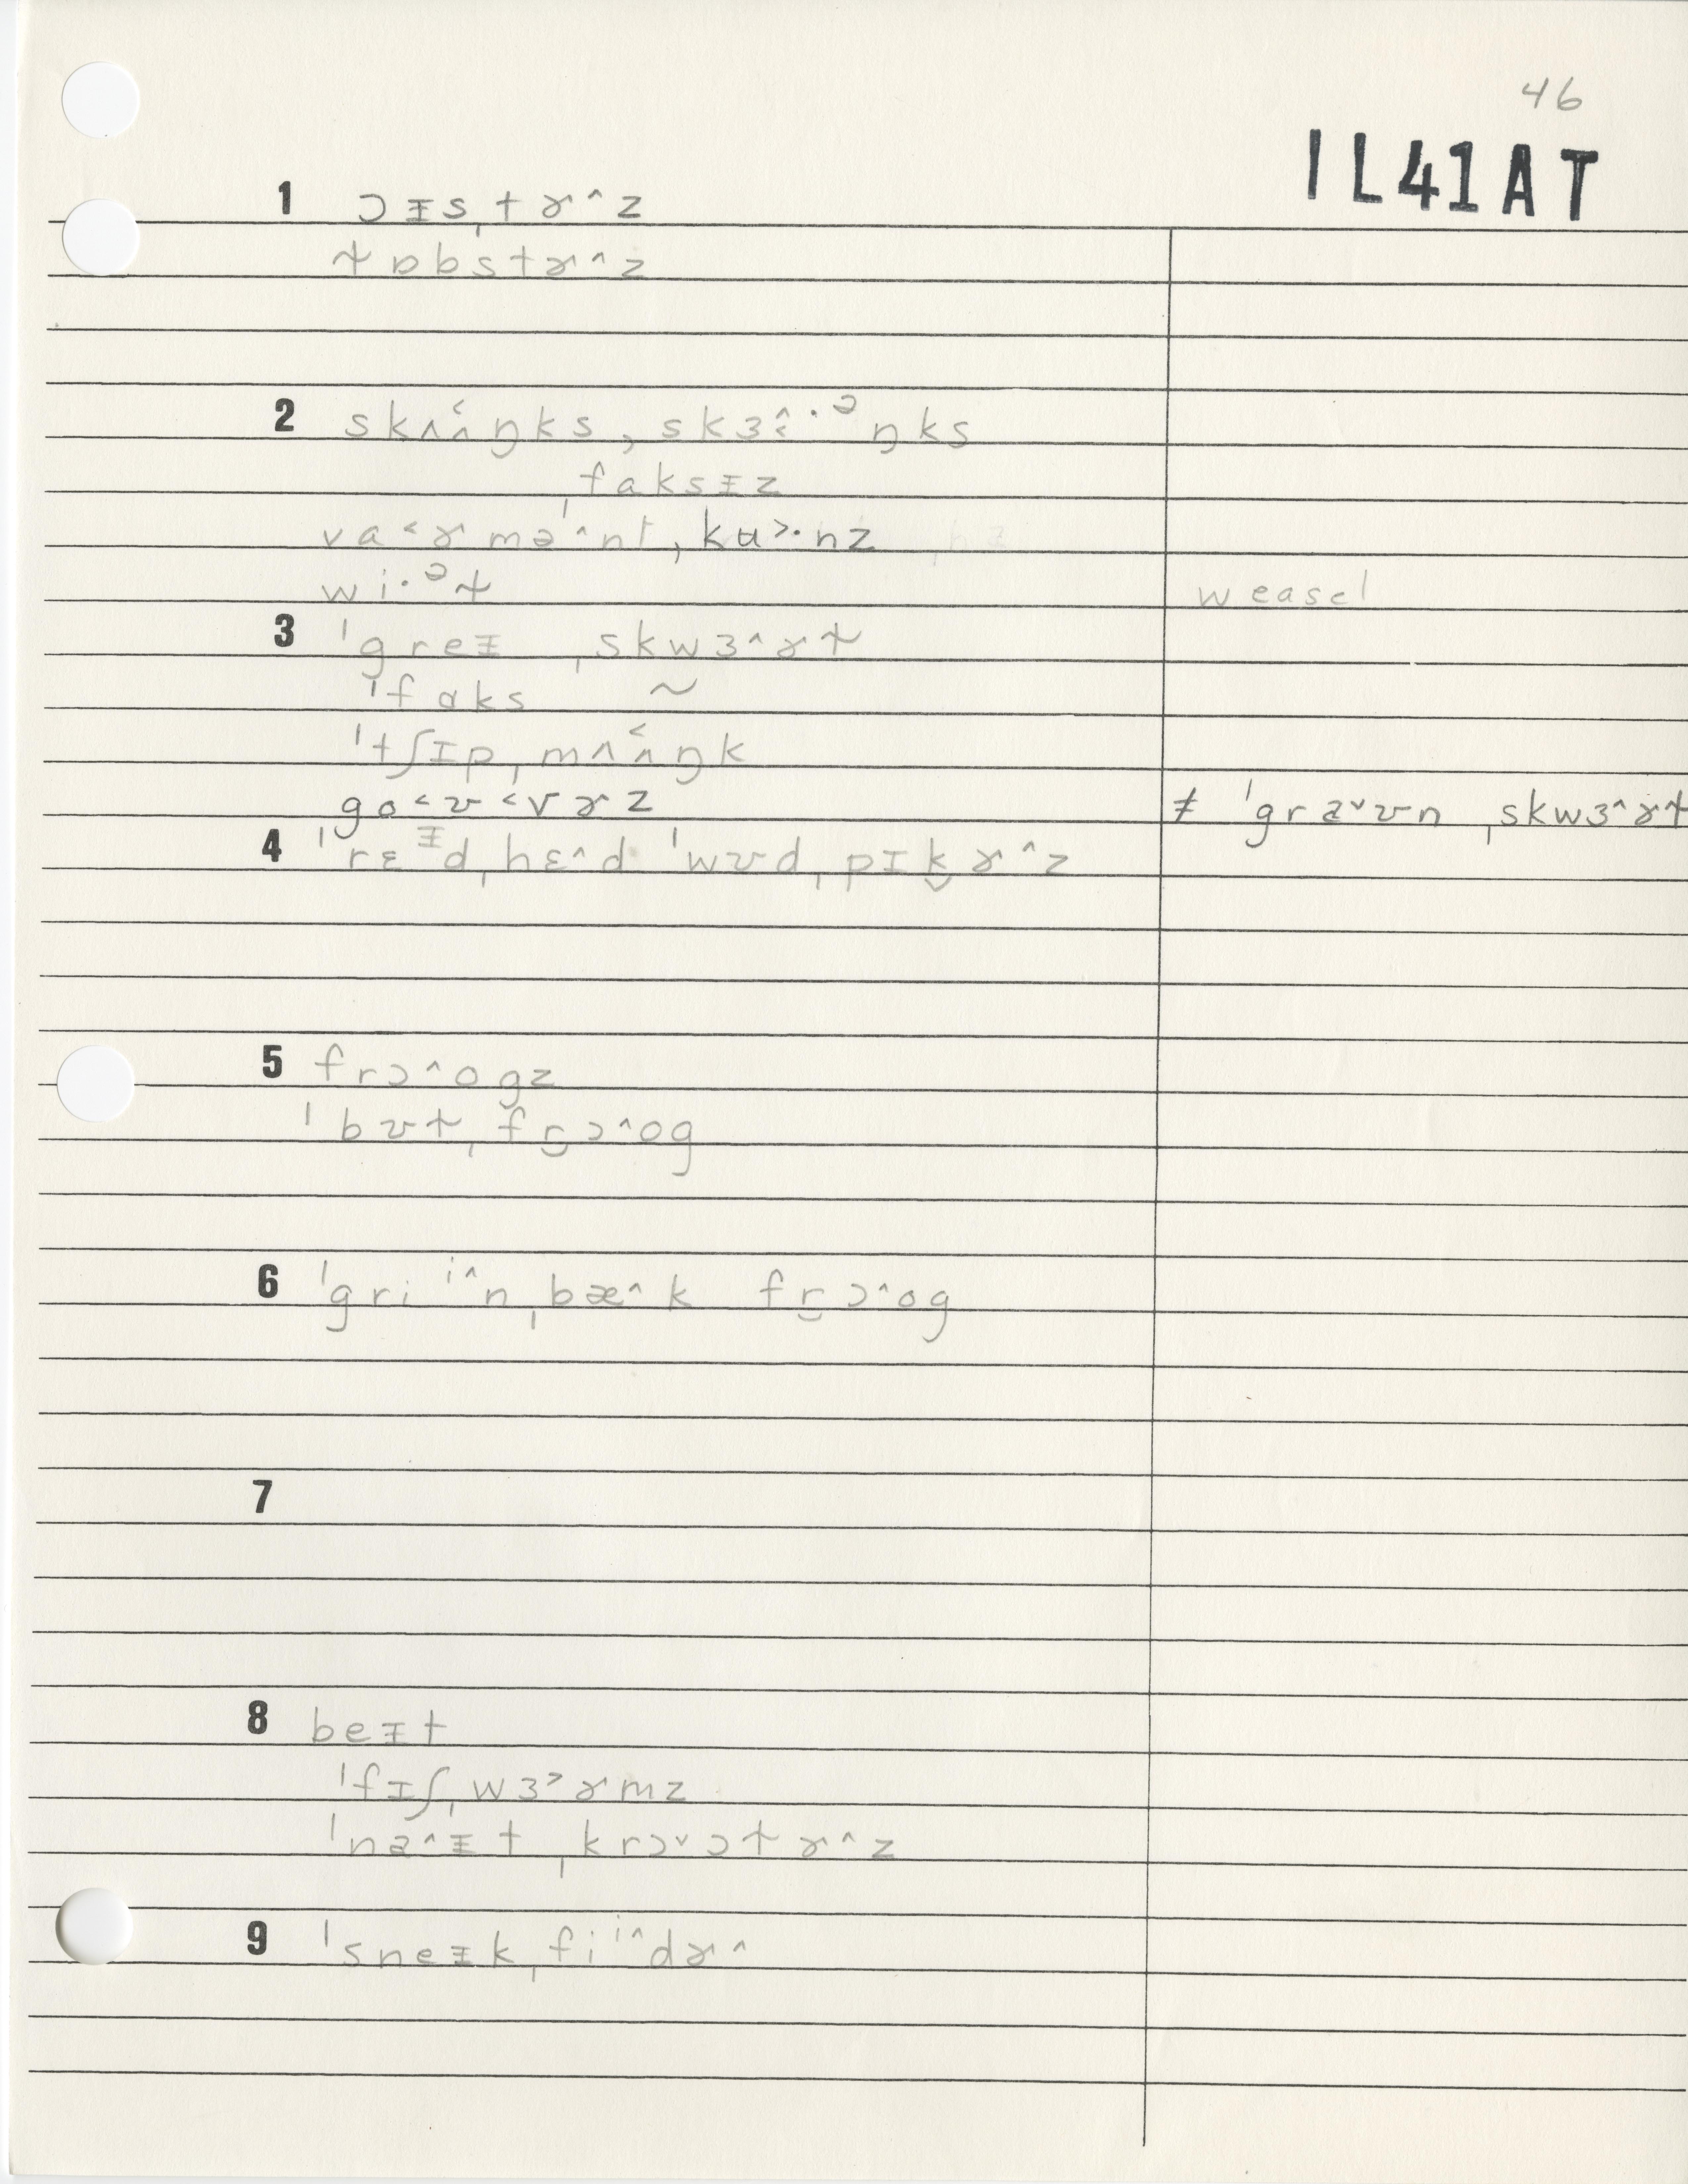 46
IL41AT
1 ɔᵻsˌtɚ^z
ɫɒbstɚ^z
2 skʌʌ̂˂ŋks, skɜ˄˂·ᵊŋks
ˌfaksᵻz
va˂ɚmə^nt, kʉ>·nz
wi·ᵊɫ weasel
3 ˈgreᵻ ˌskwɜ^ɚɫ
ˈfɑks ~
ˈtʃɪpˌmʌʌ̂˂ŋk
go˂ʊ˂vɚz ≠ ˈgraᵛʊnˌskwɜ^ɚɫ
4 ˈrɛᵻdˌhɛ^d ˈwʊdˌpɪk̬ɚ^z
5 frɔ^ogz
ˈbʊɫˌfr̬ɔ^og
6 ˈgriⁱ^nˌbæ^k fr̬ɔ^og
7
8 beᵻt
ˈfɪʃˌwɜ>ɚmz
ˈna^ᵻtˌkrɔᵛɔɫɚ^z
9 ˈsneᵻkˌfiⁱ^dɚ^